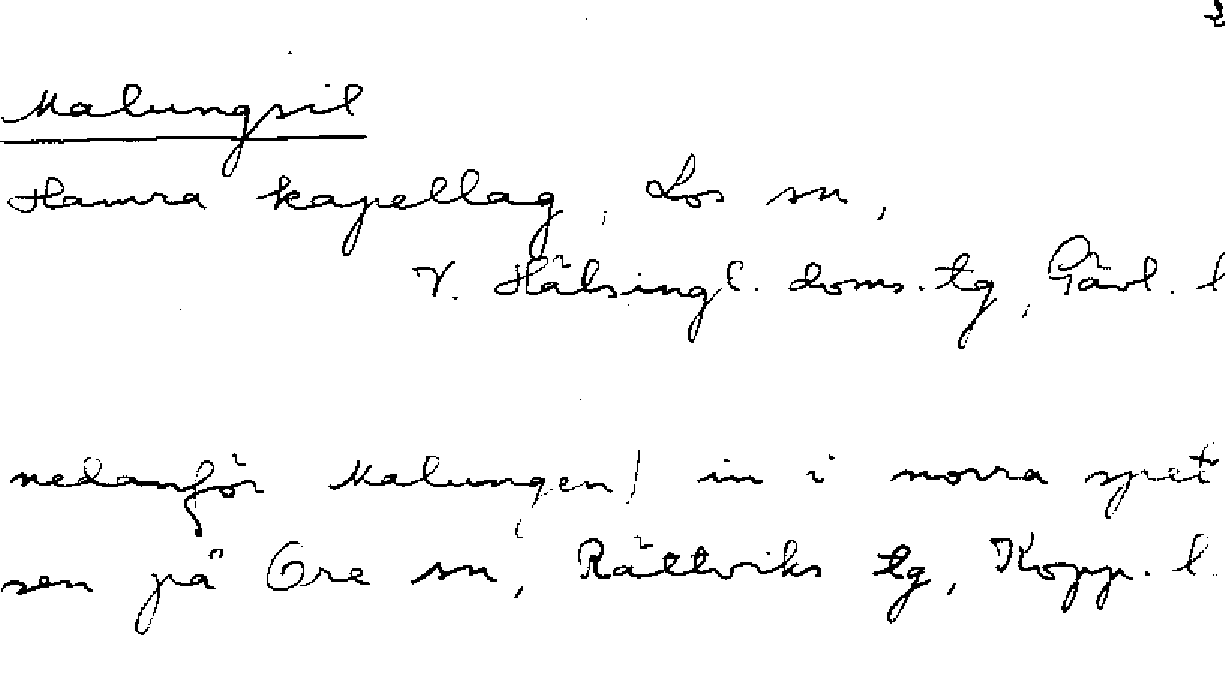 Malungsil
Hamra kapellag, Los sn,
V. Hälsingl. doms. tg, Gävl. l
nedanför Malungen/ in i norra spet
sen på Ore sn, Rättviks tg, Kopp. l.